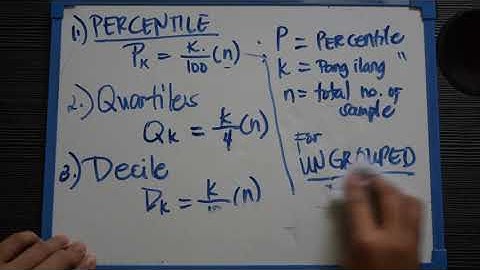 1.) PERCENTILE
Pk = k/100 (n)
2.) Quartiles
Qk = k/4 (n)
3.) Decile
Dk = k/10 (n)
P = Percentile
k = Pang ilang "
n = total no. of
sample
For
UNGROUPED